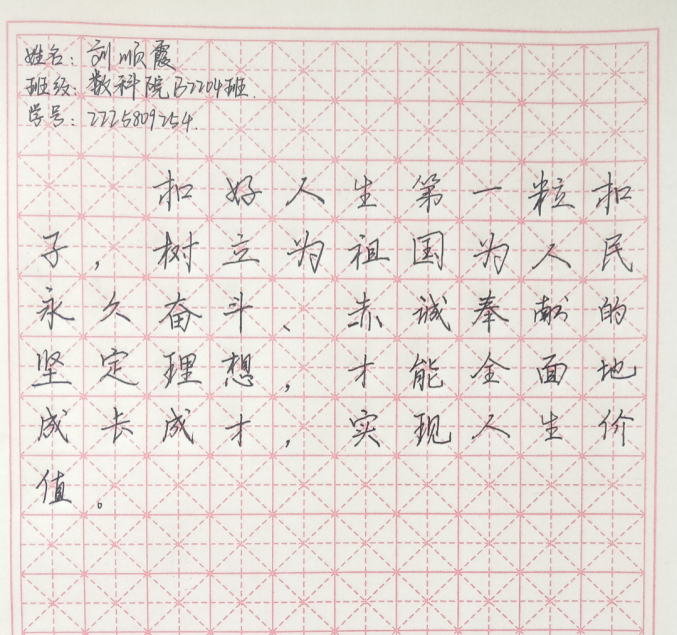 姓名：刘顺霞
班级：数科院B2204班.
学号：2225809254.
扣好人生第一粒扣
子，树立为祖国为人民
永久奋斗、赤诚奉献的
坚定理想，才能全面地
成长成才，实现人生价
值。